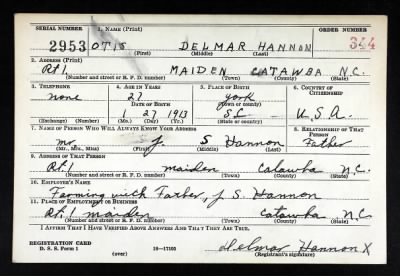 SERIAL NUMBER 1. NAME (Print) ORDER NUMBER
2953 OTIS DELMAR HANNON 344
(First) (Middle) (Last)
2. ADDRESS (Print)
Rt 1 MAIDEN CATAWBA N.C.
(Number and street or R. F. D. number) (Town) (County) (State)
3. TELEPHONE 4. AGE IN YEARS 5. PLACE OF BIRTH 6. COUNTRY OF CITIZENSHIP
none 27 York
DATE OF BIRTH (Town or county)
1 27 1913 S C U.S.A.
(Exchange) (Number) (Mo.) (Day) (Yr.) (State or country)
7. NAME OF PERSON WHO WILL ALWAYS KNOW YOUR ADDRESS 8. RELATIONSHIP OF THAT PERSON
mr. J. S Hannon Father
(Mr., Mrs., Miss) (First) (Middle) (Last)
9. ADDRESS OF THAT PERSON
Rt. 1 maiden Catawba N.C.
(Number and street or R. F. D. number) (Town) (County) (State)
10. EMPLOYER'S NAME
Farming with Father, J S. Hannon
11. PLACE OF EMPLOYMENT OR BUSINESS
Rt. 1 maiden Catawba N.C.
(Number and street or R. F. D. number) (Town) (County) (State)
I AFFIRM THAT I HAVE VERIFIED ABOVE ANSWERS AND THAT THEY ARE TRUE.
REGISTRATION CARD
D. S. S. Form 1 16-17105 Delmar Hannon X
(over) (Registrant's signature)